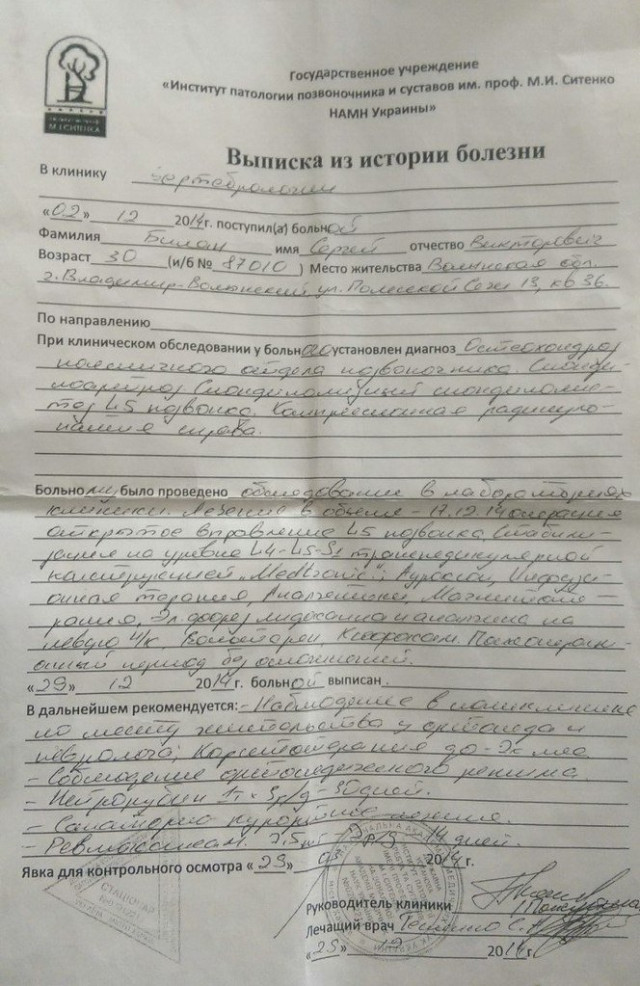 Государственное учреждение
«Институт патологии позвоночника и суставов им. проф. М.И. Ситенко
НАМН Украины»
М.І.СИТЕНКА
Выписка из истории болезни
В клинику Вертебрологии
«02» 12 2014г. поступил(а) больной
Фамилия Билан имя Сергей отчество Викторович
Возраст 30 (и/б № 87010) Место жительства Волынская обл.
г. Владимир-Волынский ул. 13, кв 36.
По направлению
При клиническом обследовании у больного установлен диагноз Остеохондроз
поясничного отдела позвоночника. Спонди-
лоартроз Спондилолизный спондилолис-
тез L5 позвонка. Компрессионная радикуло-
патия справа.
Больному было проведено обследование в лабораториях
клиники. Лечение в объеме - 17.12.14 операция
открытое вправление L5 позвонка. Стабили-
зация на уровне L4-L5-S1 транспедикулярной
конструкцией „Medtronic"; Инфузи-
онная терапия, Анальгетики, Магнитоте-
рапия, Эл. форез лидокаина и анальгина на
левую н/к.
период без осложнений.
«29» 12 2014г. больной выписан.
В дальнейшем рекомендуется: - Наблюдение в поликлинике
по месту жительства у ортопеда и
невролога; Корсетотерапия до - 3х мес
- Соблюдение ортопедического режима
- Нейрорубин 1т - 30дней.
- Санаторно курортное лечение.
- Ревмоксикам 7,5 14 дней
Явка для контрольного осмотра «29» 03 2014г.
СТАЦІОНАР
Руководитель клиники
Лечащий врач
12 2014г.